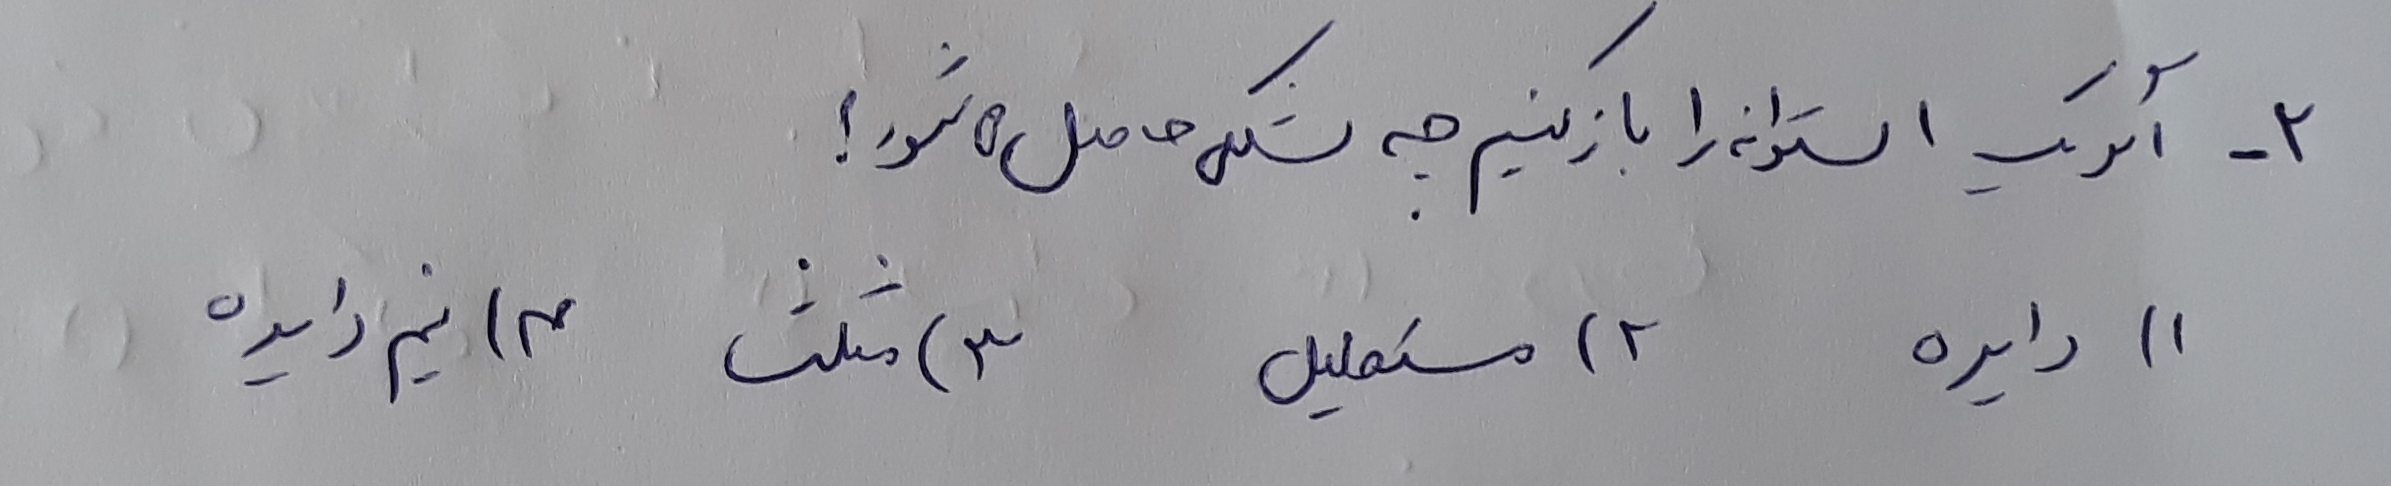 ۲- اگر یک استوانه را باز کنیم چه شکلی حاصل می شود؟
۱) دایره ۲) مستطیل ۳) مثلث ۴) نیم دایره